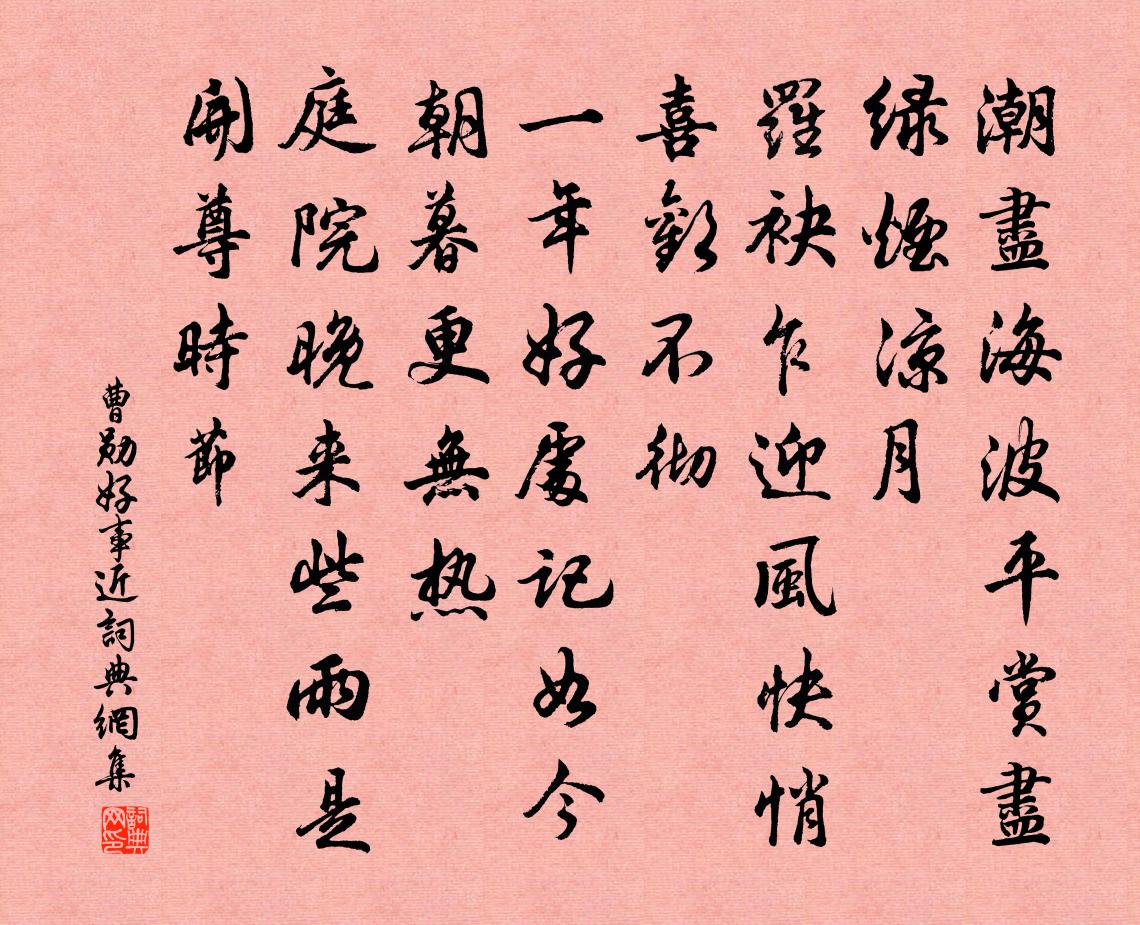 潮盡海波平賞盡
緑煙涼月
羅袂乍迎風快悄
喜歡不彻
一年好處記如今
朝暮更無热
庭院晚来些雨是
開尊時節
曹勛好事近詞典網集
詞典网印